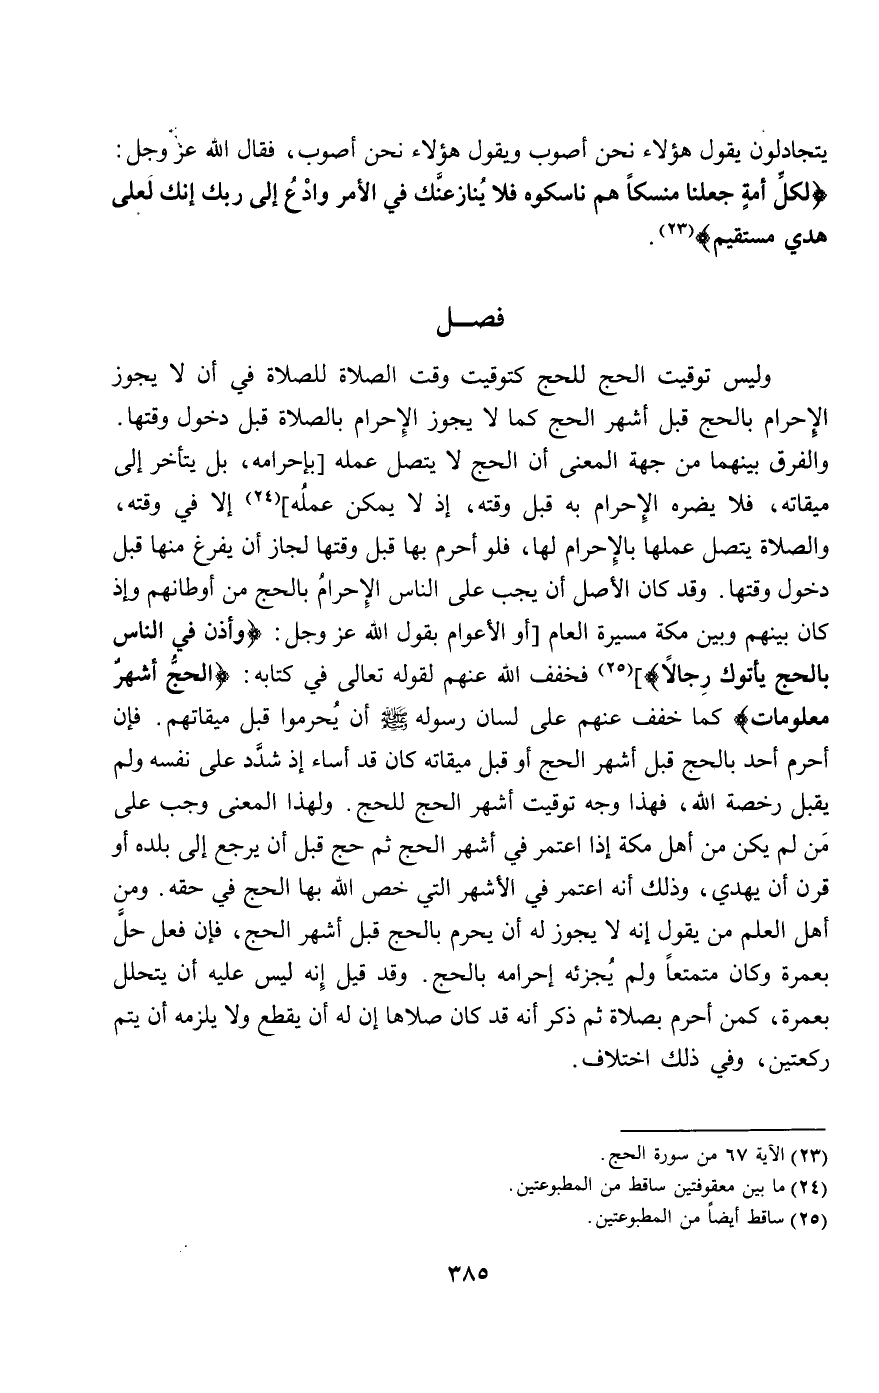 يتجادلون يقول هؤلاء نحن أصوب ويقول هؤلاء نحن أصوب، فقال الله عز وجل:
﴿لكلِّ أمةٍ جعلنا منسكاً هم ناسكوه فلا يُنازعنَّك في الأمر وادْعُ إلى ربك إنك لَعلى
هدي مستقيم﴾(٢٣).
فصــل
وليس توقيت الحج للحج كتوقيت وقت الصلاة للصلاة في أن لا يجوز
الإحرام بالحج قبل أشهر الحج كما لا يجوز الإحرام بالصلاة قبل دخول وقتها.
والفرق بينهما من جهة المعنى أن الحج لا يتصل عمله [بإحرامه، بل يتأخر إلى
ميقاته، فلا يضره الإحرام به قبل وقته، إذ لا يمكن عملُه](٢٤) إلا في وقته،
والصلاة يتصل عملها بالإحرام لها، فلو أحرم بها قبل وقتها لجاز أن يفرغ منها قبل
دخول وقتها. وقد كان الأصل أن يجب على الناس الإحرامُ بالحج من أوطانهم وإذ
كان بينهم وبين مكة مسيرة العام [أو الأعوام بقول الله عز وجل: ﴿وأذن في الناس
بالحج يأتوك رِجالاً﴾](٢٥) فخفف الله عنهم لقوله تعالى في كتابه: ﴿الحجُّ أشهرٌ
معلومات﴾ كما خفف عنهم على لسان رسوله ﷺ أن يُحرموا قبل ميقاتهم. فإن
أحرم أحد بالحج قبل أشهر الحج أو قبل ميقاته كان قد أساء إذ شدَّد على نفسه ولم
يقبل رخصة الله، فهذا وجه توقيت أشهر الحج للحج. ولهذا المعنى وجب على
مَن لم يكن من أهل مكة إذا اعتمر في أشهر الحج ثم حج قبل أن يرجع إلى بلده أو
قرن أن يهدي، وذلك أنه اعتمر في الأشهر التي خص الله بها الحج في حقه. ومن
أهل العلم من يقول إنه لا يجوز له أن يحرم بالحج قبل أشهر الحج، فإن فعل حلَّ
بعمرة وكان متمتعاً ولم يُجزئه إحرامه بالحج. وقد قيل إنه ليس عليه أن يتحلل
بعمرة، كمن أحرم بصلاة ثم ذكر أنه قد كان صلاها إن له أن يقطع ولا يلزمه أن يتم
ركعتين، وفي ذلك اختلاف.
(٢٣) الآية ٦٧ من سورة الحج.
(٢٤) ما بين معقوفتين ساقط من المطبوعتين.
(٢٥) ساقط أيضاً من المطبوعتين.
٣٨٥